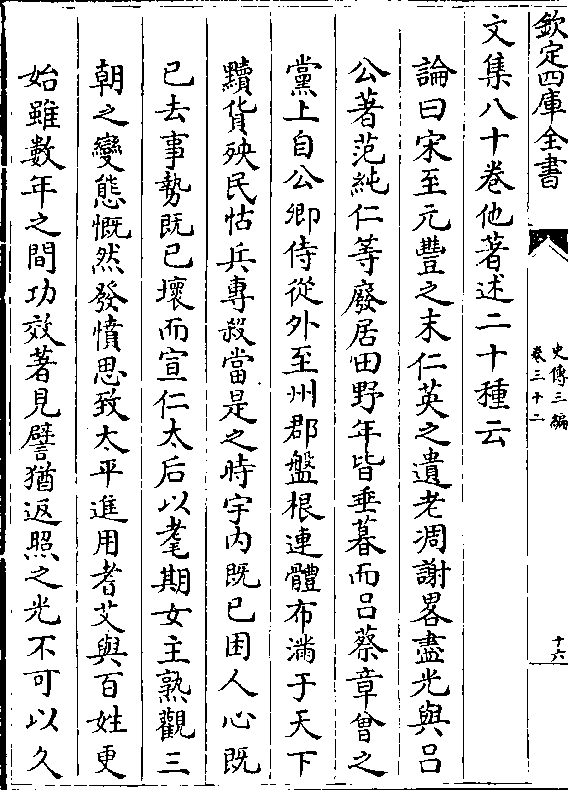 欽定四庫全書
史傳三編
卷三十二
十六
文集八十卷他著述二十種云
論曰宋至元豐之末仁英之遺老凋謝畧盡光與呂
公著范純仁等廢居田野年皆垂暮而呂蔡章曾之
黨上自公卿侍從外至州郡盤根連體布滿于天下
黷貨殃民怙兵專殺當是之時宇内既已困人心既
已去事勢既已壞而宣仁太后以耄期女主熟觀三
朝之變態慨然發憤思致太平進用耆艾與百姓更
始雖數年之間功效著見譬猶返照之光不可以久